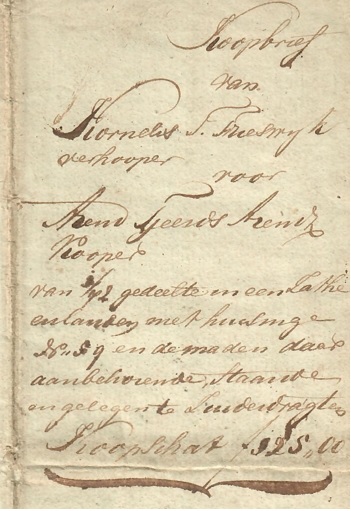 Koopbrief
van
Kornelis F. Frieswyk
verkooper
voor
Arend Tjeerds Arendz
Kooper
van 1/12 gedeelte in een Zathe
en landen met huisinge
No. 59 en de maden daer
aanbehorende, staande
en gelegen te Suiderdragten
Koopschat 125,00